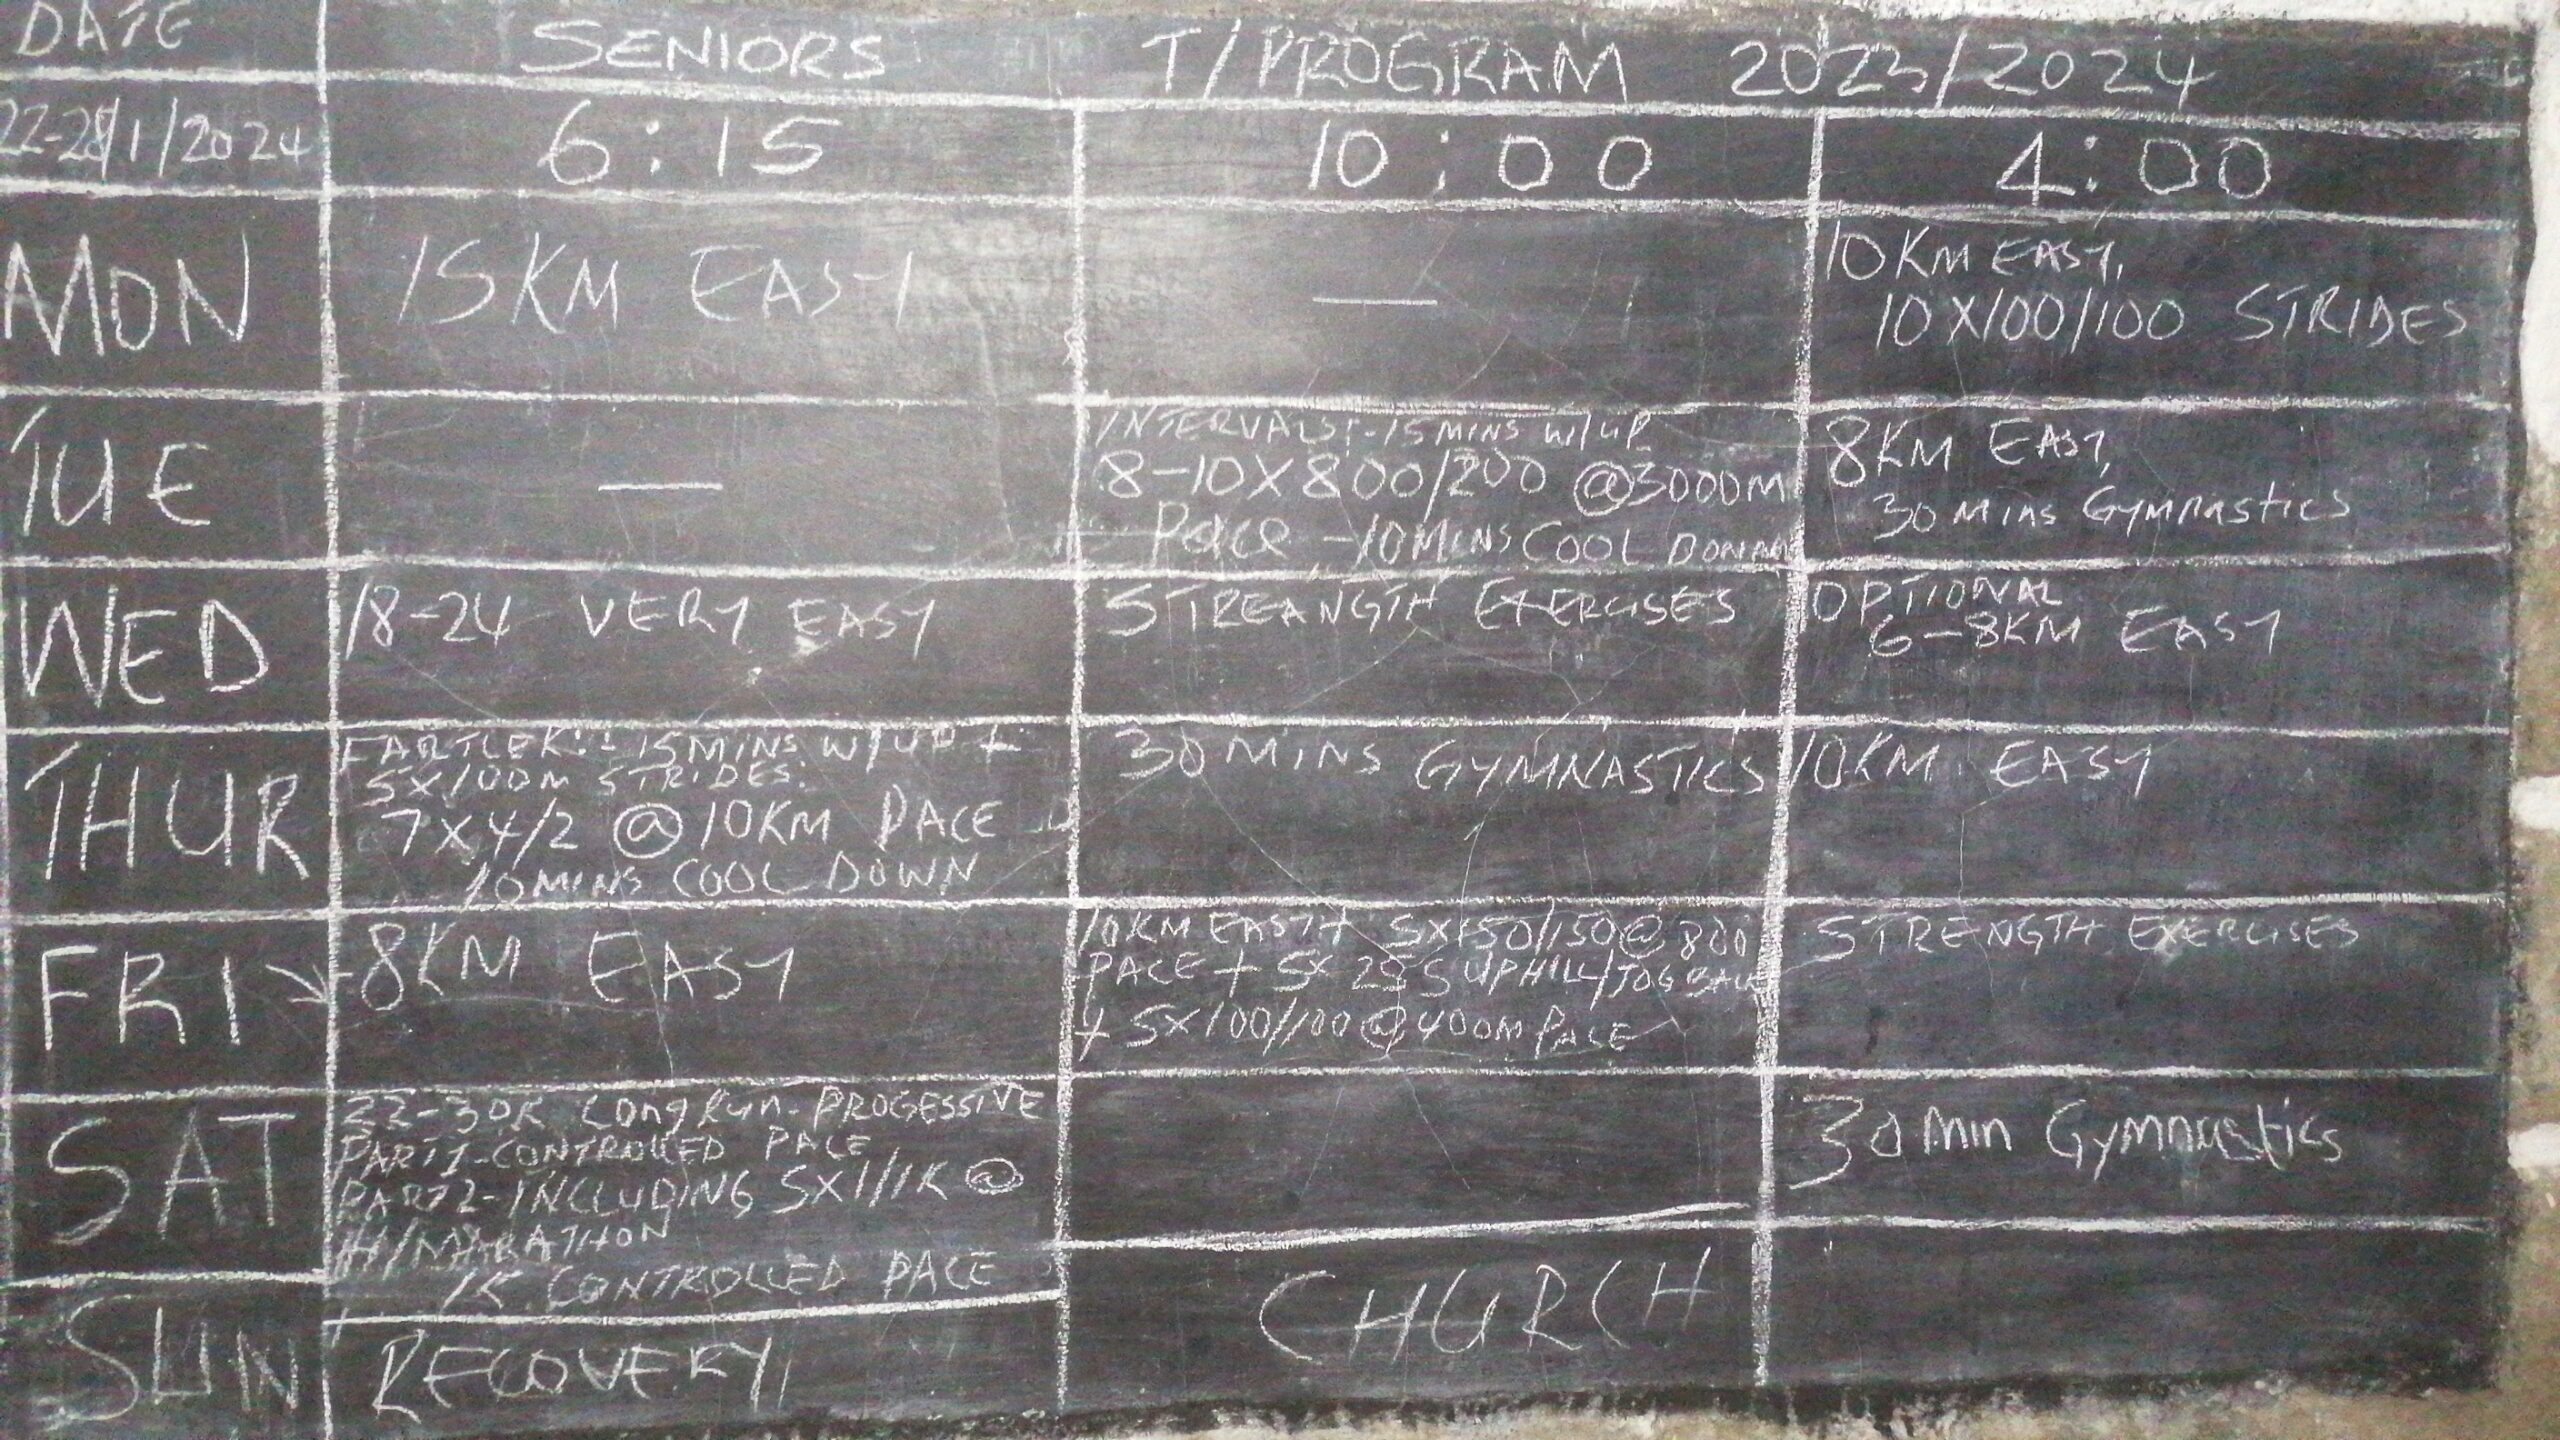 DATE SENIORS T/PROGRAM 2023/2024
22-28/1/2024 6:15 10:00 4:00
MON 15KM EASY — 10KM EASY,
10X100/100 STRIDES
TUE — INTERVALS:-15MINS W/UP
8-10X800/200 @3000M
PACE -10MINS COOL DOWN
8KM EASY,
30 MINS GYMNASTICS
WED 18-24 VERY EASY STREANGTH EXERCISES OPTIONAL
6-8KM EASY
THUR FARTLEK:-15MINS W/UP +
5X100M STRIDES.
7X4/2 @ 10KM PACE
10MINS COOL DOWN
30 MINS GYMNASTICS 10KM EASY
FRI → 8KM EASY 10KM EASY+ 5X150/150@800
PACE + 5X 25S UPHILL/JOG BACK
+ 5X100/100@400M PACE
STRENGTH EXERCISES
SAT 22-30K Long Run-PROGESSIVE
PART1-CONTROLLED PACE
PART2-INCLUDING 5X1/1K @
H/MARATHON
1K CONTROLLED PACE
30 min Gymnastics
SUN RECOVERY CHURCH